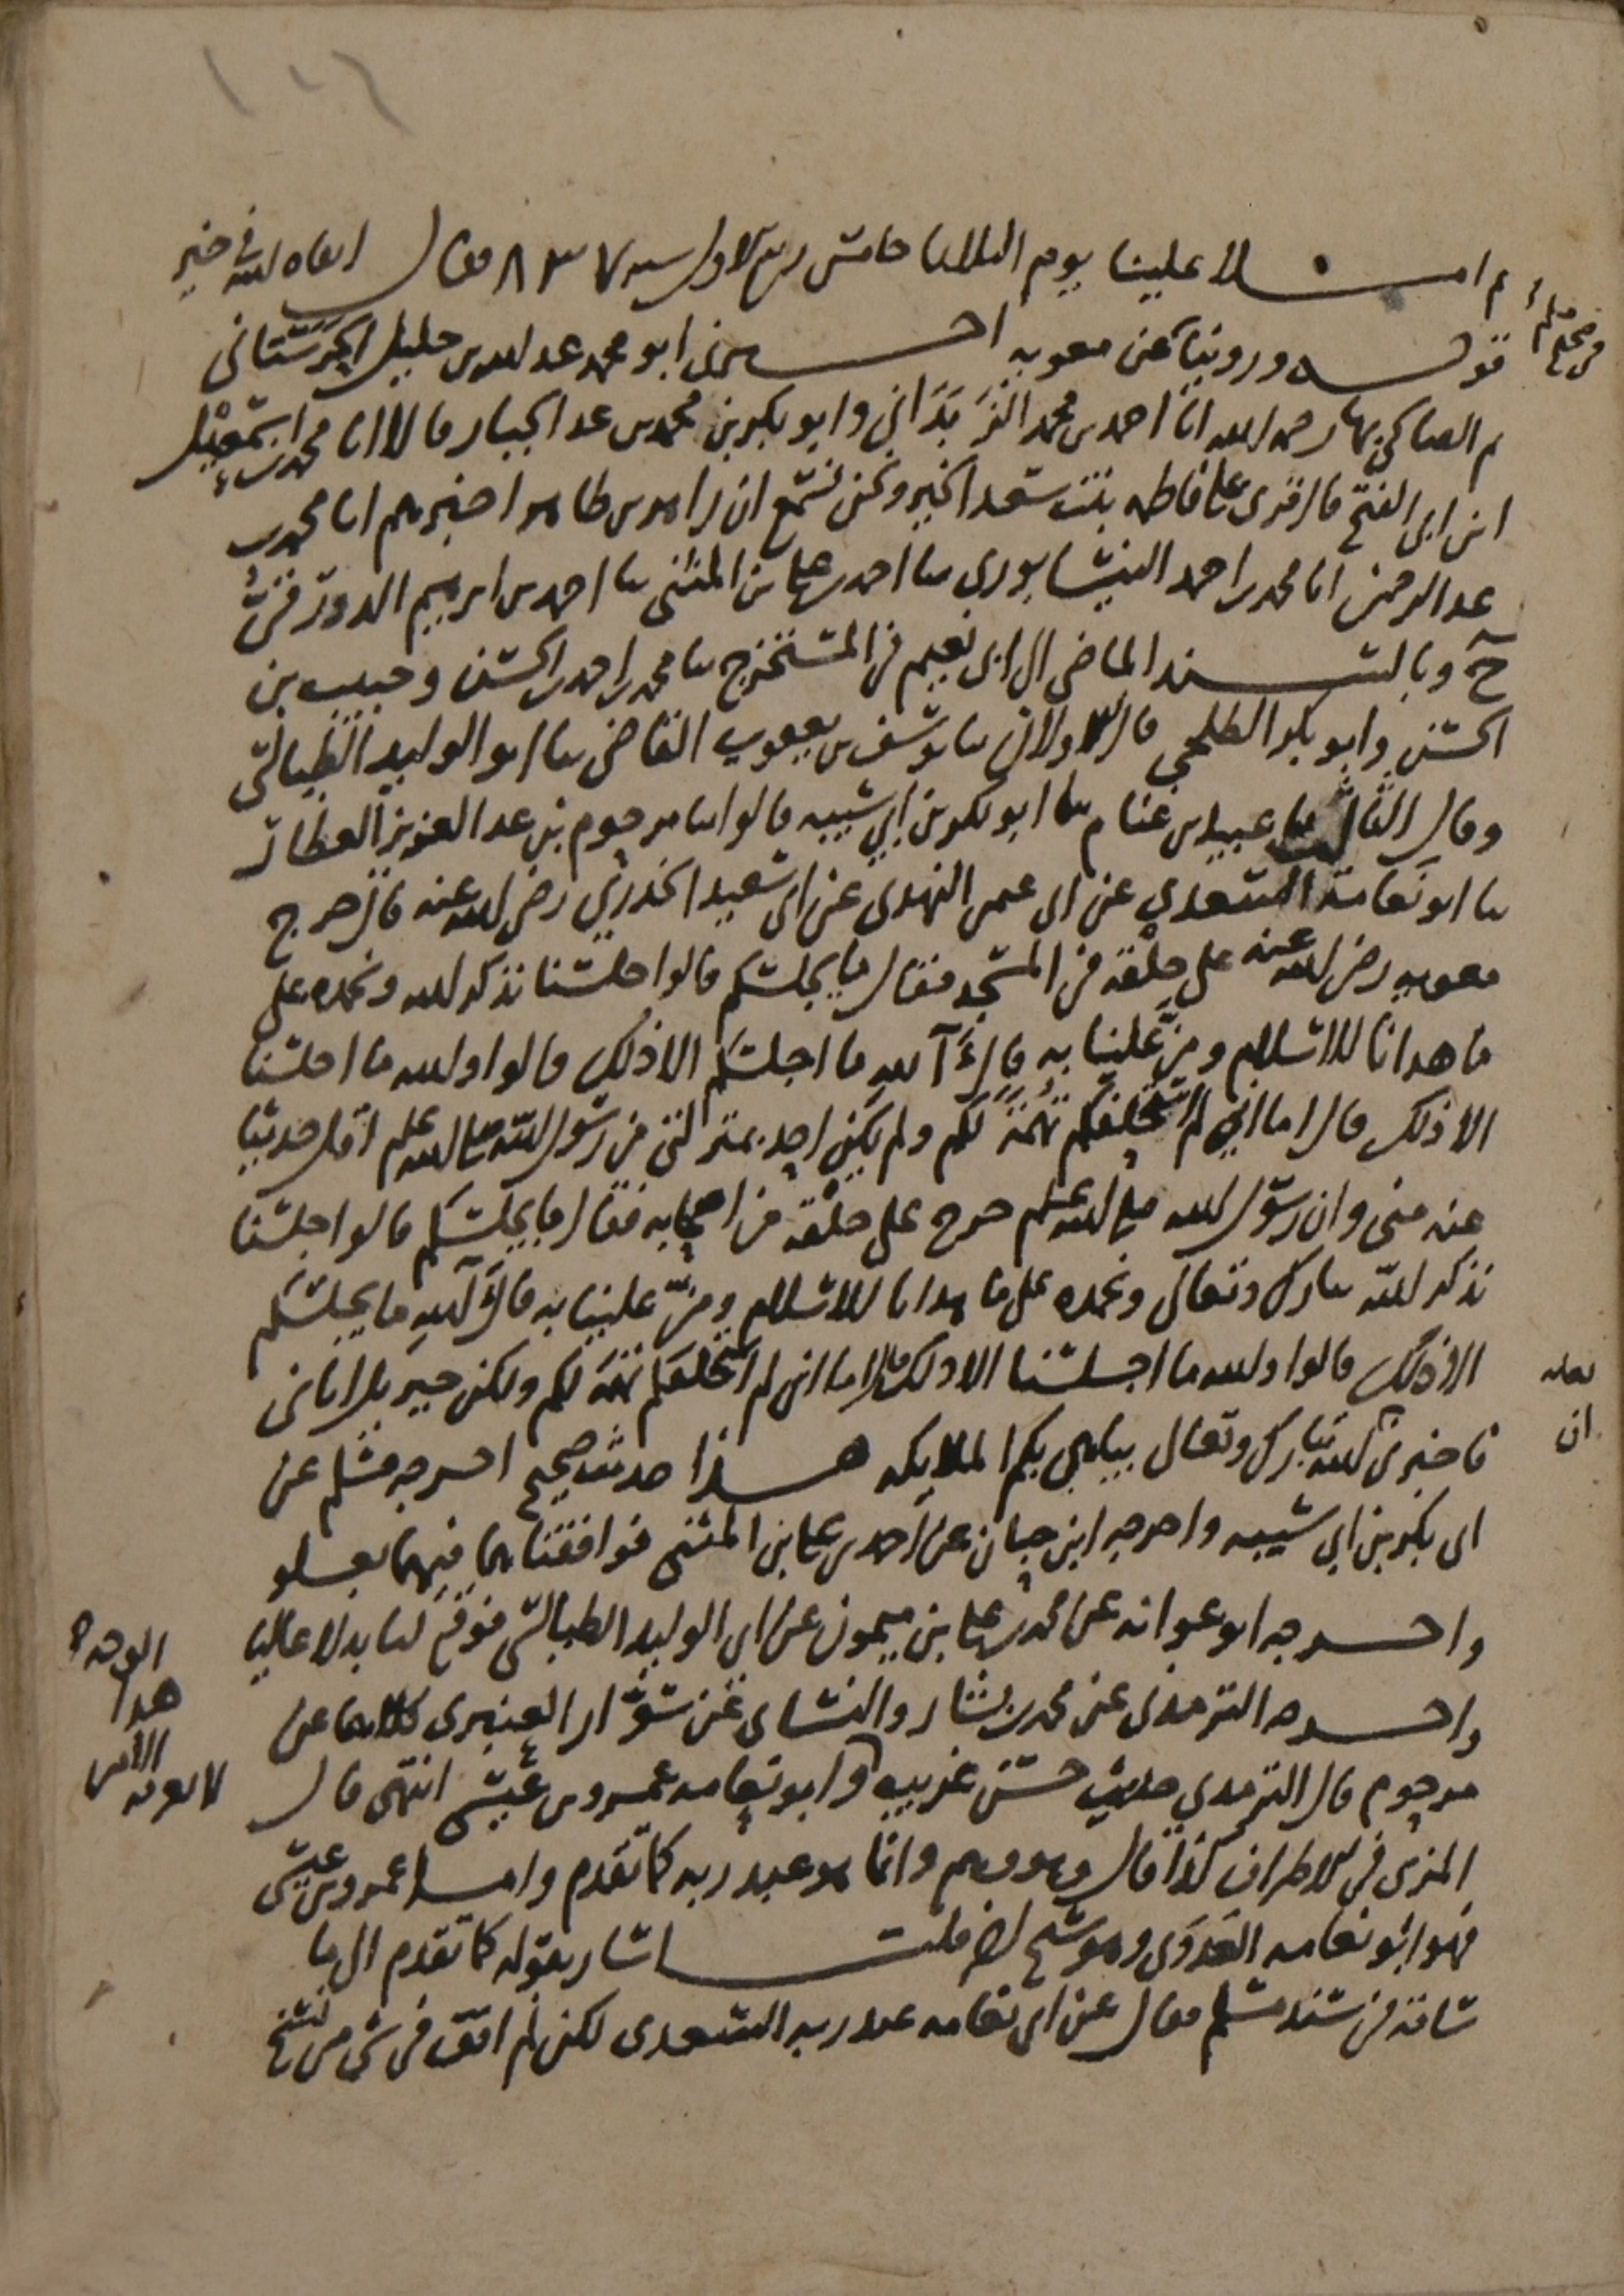 ١٠٦
ثم املا علينا يوم الثلاثا خامس ربيع الاول سنة ٨٣٧ فقال ابقاه الله في خير
قوله وروينا عن معوية اخبرني ابو محمد عبد الله بن خليل الحرستاني
ثم الصالحي بها رحمه الله انا احمد بن محمد الزبداني وابو بكر بن محمد بن عبد الجبار قالا انا محمد بن اسمعيل
ابن ابي الفتح قال قرئ على فاطمة بنت سعد الخير ونحن نسمع ان زاهر بن طاهر اخبرهم انا محمد بن
عبد الرحمن انا محمد بن احمد النيسابوري ثنا احمد بن علي بن المثنى ثنا احمد بن ابرهيم الدورقي
ح وبالسند الماضي الى ابي نعيم في المستخرج ثنا محمد بن احمد بن الحسن وحبيب بن
الحسن وابو بكر الطلحي قال الاولان ثنا يوسف بن يعقوب القاضي ثنا ابو الوليد الطيالسي
وقال الثالث ثنا عبيد بن غنام ثنا ابو بكر بن ابي شيبه قالوا ثنا مرحوم بن عبد العزيز العطار
ثنا ابو نعامة السعدي عن ابي عثمن النهدي عن ابي سعيد الخدري رضي الله عنه قال خرج
معوية رضي الله عنه على حلقة في المسجد فقال ما يجلسكم قالوا جلسنا نذكر الله ونحمده على
ما هدانا للاسلام ومن علينا به قال آلله ما اجلسكم الا ذلك قالوا والله ما اجلسنا
الا ذلك قال اما اني لم استحلفكم تهمة لكم ولم يكن احد بمنزلتي من رسول الله صلى الله عليه وسلم اقل حديثا
عنه مني وان رسول الله صلى الله عليه وسلم خرج على حلقة من اصحابه فقال ما يجلسكم قالوا جلسنا
نذكر الله تبارك وتعالى ونحمده على ما هدانا للاسلام ومن علينا به قال آلله ما يجلسكم
الا ذلك قالوا والله ما اجلسنا الا ذلك قال اما اني لم استحلفكم تهمة لكم ولكن جبريل اتاني
فاخبرني الله تبارك وتعالى يباهي بكم الملايكه هذا حديث صحيح اخرجه مسلم عن
ابي بكر بن ابي شيبه واخرجه ابن حبان عن احمد بن علي بن المثنى فوافقناهما فيهما بعلو
واخرجه ابو عوانه عن محمد بن علي بن ميمون عن ابي الوليد الطيالسي فوقع لنا بدلا عاليا
واخرجه الترمذي عن محمد بن بشار والنساي عن سوار العنبري كلاهما عن
مرحوم قال الترمذي حديث حسن غريب وابو نعامه عمرو بن عيسى انتهى قال
المزي في الاطراف كذا قال وهو وهم وانما هو عبد ربه كما تقدم واما عمرو بن عيسى
فهو ابو نعامه العدوي وهو شيخ اخر قلت اشار بقوله كما تقدم الى ما
ساقه في سند مسلم فقال عن ابي نعامه عبد ربه السعدي لكن لم اقف في شي من نسخ
في صحيح مسلم
لعله
ان
الوجه
هذا
الا من
لا نعرفه